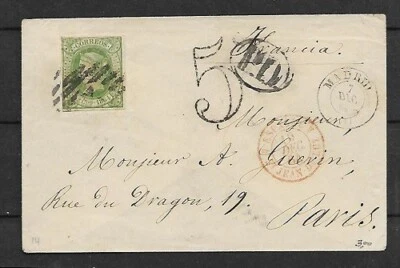 CORREOS
5
Francia.
P.D.
MADRID
7
DIC
Monsieur,
Monsieur A. Guérin,
DEC
Rue du Dragon, 19.
Paris.